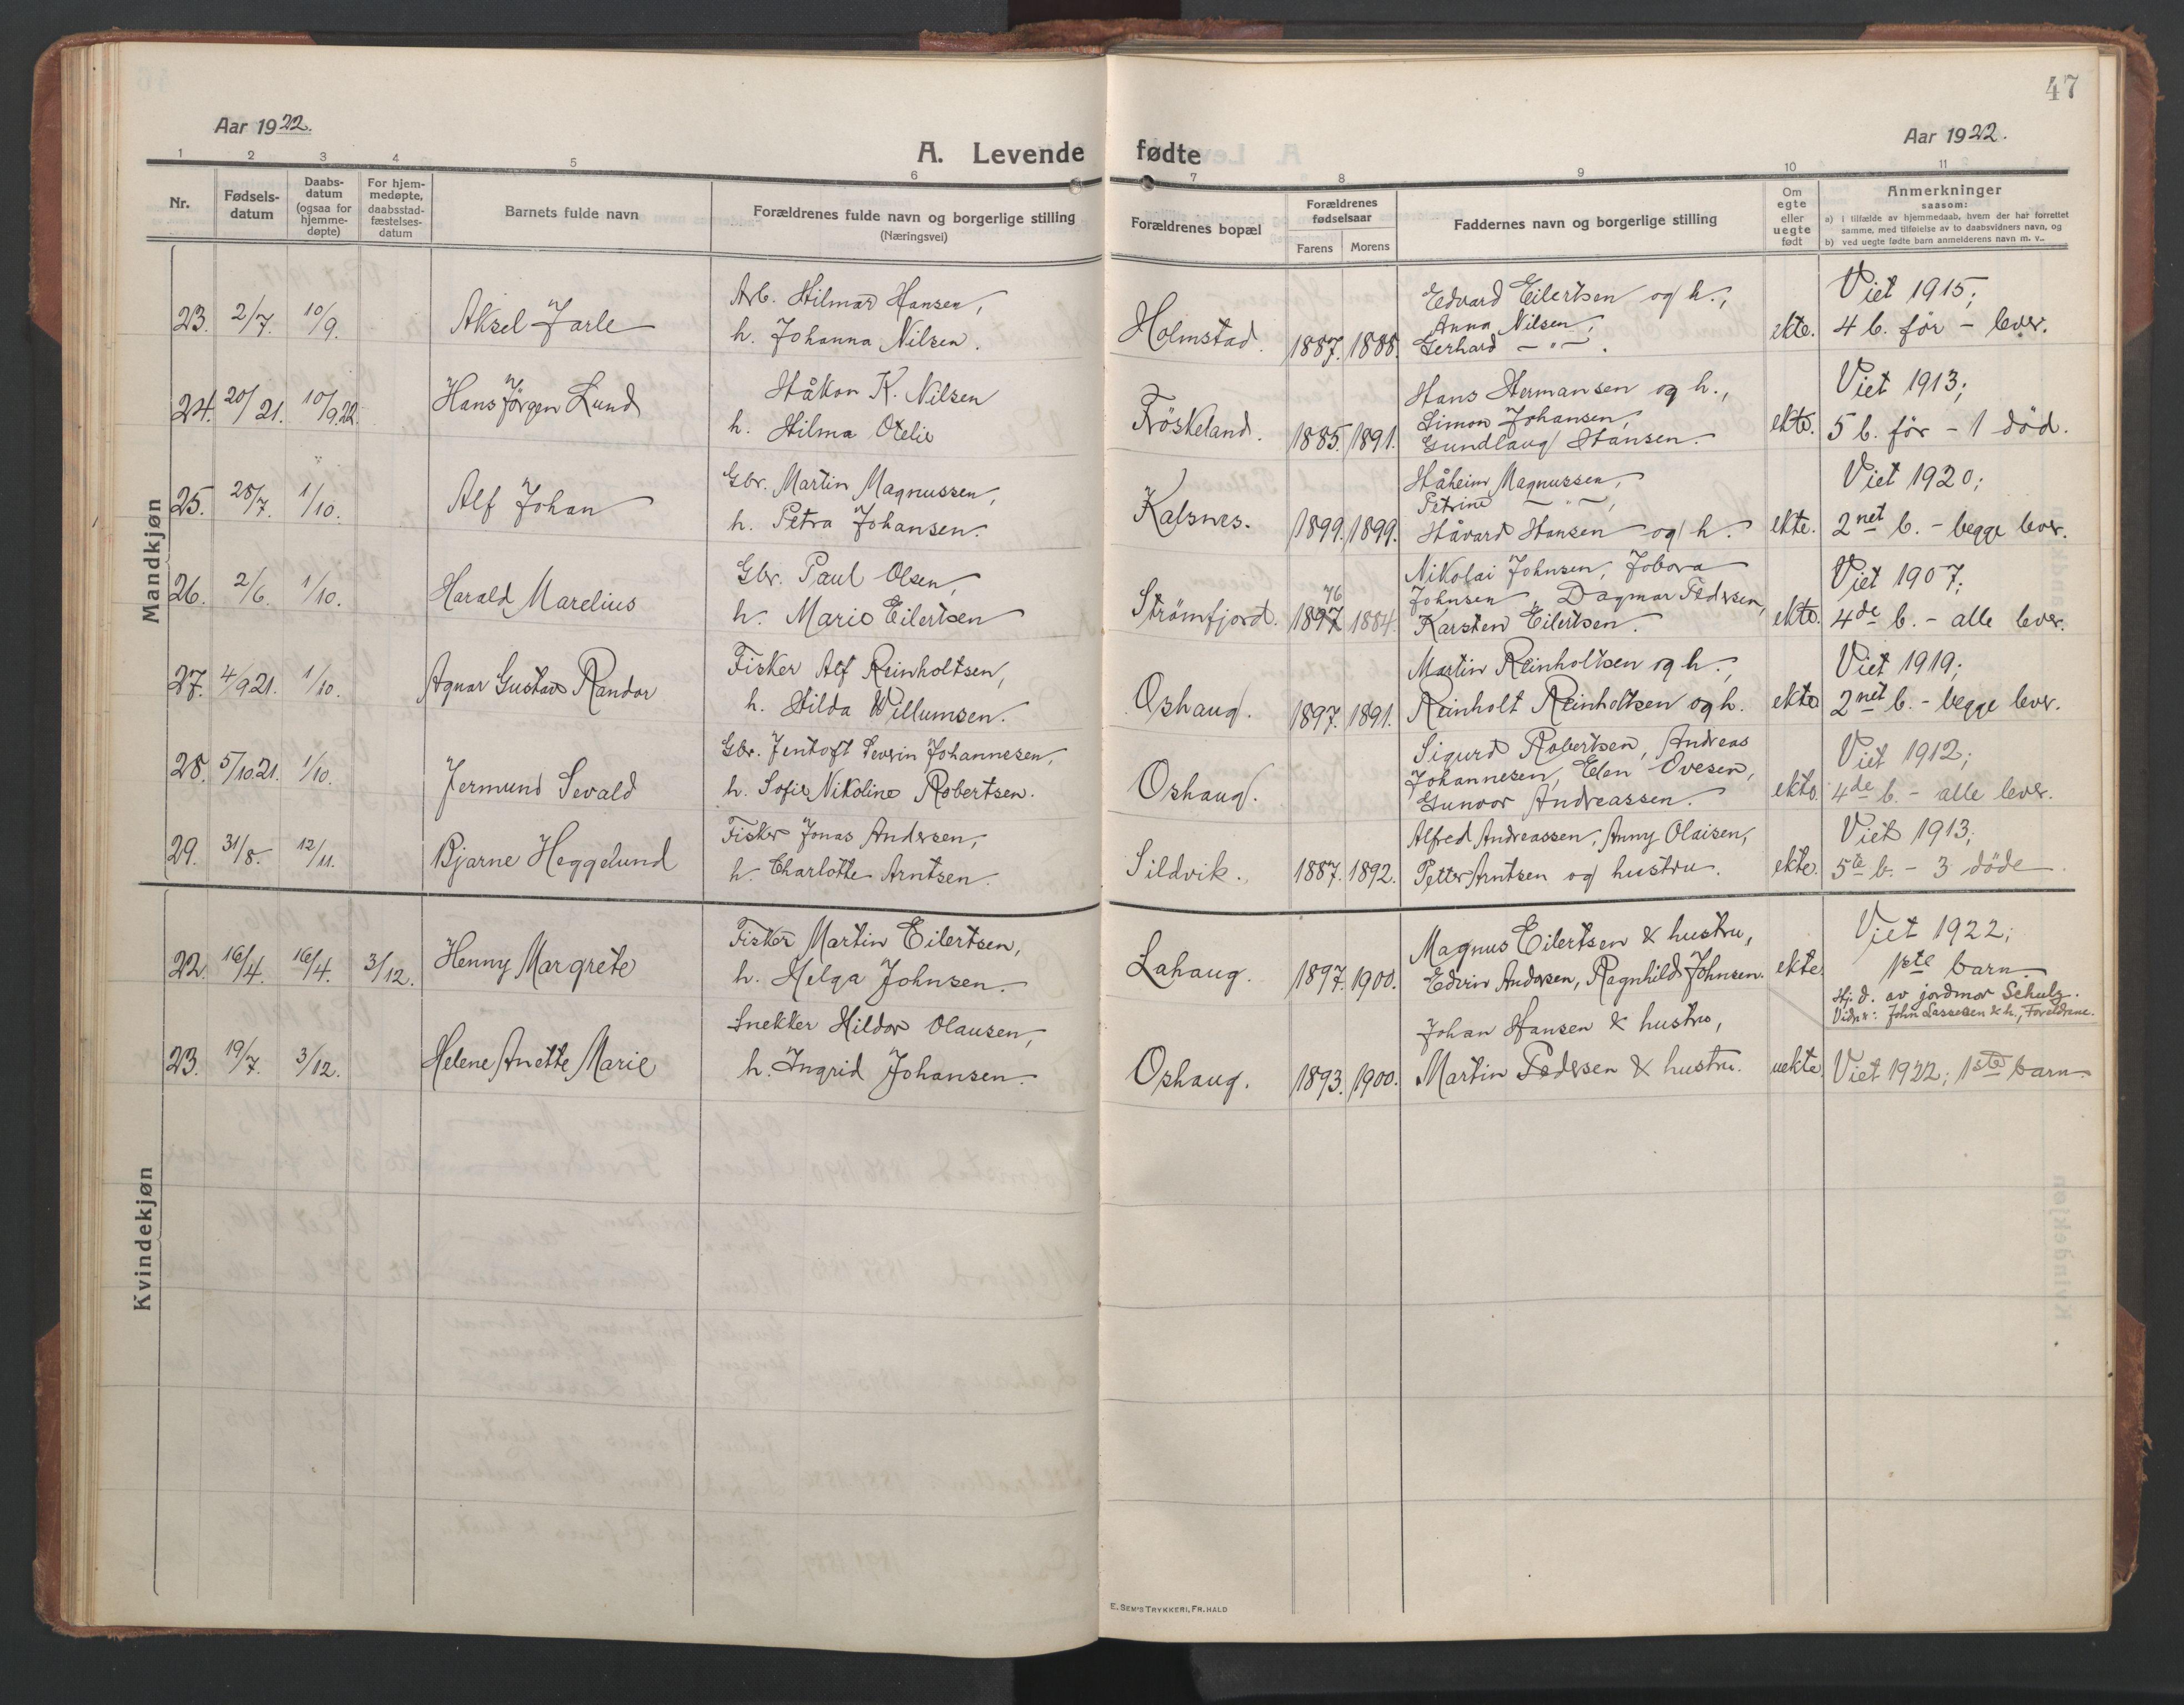 47
Aar 1922.
Aar 1922.
A. Levende fødte
1 2 3 4 5 6 7 8 9 10 11
Nr.
Fødsels-
datum
Daabs-
datum
(ogsaa for
hjemme-
døpte)
For hjem-
medøpte,
daabsstad-
fæstelses-
datum
Barnets fulde navn
Forældrenes fulde navn og borgerlige stilling
(Næringsvei)
Forældrenes bopæl
Forældrenes
fødselsaar
Farens Morens
Faddernes navn og borgerlige stilling
Om
egte
eller
uegte
født
Anmerkninger
saasom:
a) i tilfælde av hjemmedaab, hvem der har forrettet
samme, med tilføielse av to daabsvidners navn, og
b) ved uegte fødte barn anmelderens navn m. v..
Mandkjøn
23. 2/7. 10/9. Aksel Jarle
Arb. Hilmar Hansen,
h. Johanna Nilsen.
Holmstad. 1887. 1888.
Edvard Eilertsen og h.,
Anna Nilsen,
Gerhard — " — .
ekte.
Viet 1915;
4 b. før - lever.
24. 20/ 21. 10/9.22. Hans Jörgen Lund
Håkon K. Nilsen
h. Hilma Otelie
Fröskeland. 1885. 1891.
Hans Hermansen og h.,
Simon Johansen,
Gundlaug Hansen.
ekte.
Viet 1913;
5 b. för - 1 död.
25. 28/7. 1/10. Alf Johan
Gbr. Martin Magnussen,
h. Petra Johansen.
Kalsnes. 1899. 1899.
Håheim Magnussen,
Petrine — " —,
Håvard Hansen og h.
ekte.
Viet 1920;
2net b. - begge lever.
26. 2/6. 1/10. Harald Marelius
Gbr. Paul Olsen,
h. Marie Eilertsen
Strömfjord. 1897 76 1884.
Nikolai Johnsen, Jobora
Johnsen, Dagmar Pedersen,
Karsten Eilertsen.
ekte.
Viet 1907;
4de b. - alle lever.
27. 4/9 21. 1/10. Agnar Gustav Randor
Fisker Alf Reinholtsen,
h. Hilda Willumsen.
Oshaug. 1897. 1891.
Martin Reinholtsen og h.,
Reinholt Reinholtsen og h.
ekte
Viet 1919;
2net b. - begge lever.
28. 5/10.21. 1/10. Jermund Sevald
Gbr. Jentoft Severin Johannesen,
h. Sofie Nikoline Robertsen.
Oshaug.
Sigurd Robertsen, Andreas
Johannesen, Elen Ovesen,
Gunvor Andreassen.
ekte.
Viet 1912;
4de b. - alle lever.
29. 31/8. 12/11. Bjarne Heggelund
Fisker Jonas Andersen,
h. Charlotte Arntsen.
Sildvik. 1887. 1892.
Alfred Andreassen, Anny Olaisen,
Petter Arntsen og hustru.
ekte.
Viet 1913;
5te b. - 3 döde.
Kvindekjøn
22. 16/4. 16/4. 3/12. Henny Margrete
Fisker Martin Eilertsen,
h. Helga Johnsen.
Lahaug. 1897. 1900.
Magnus Eilertsen & hustru,
Edvin Andersen, Ragnhild Johnsen.
ekte
Viet 1922;
1ste barn.
Hj.d. av jordmor Schulz.
Vidner: John Lassesen & h., Foreldrene.
23. 19/7. 3/12. Helene Anette Marie
Snekker Hildor Olausen,
h. Ingrid Johansen.
Oshaug. 1893. 1900.
Johan Hansen & hustru,
Martin Pedersen & hustru.
uekte.
Viet 1922; 1ste barn.
E. SEM'S TRYKKERI, FR.HALD